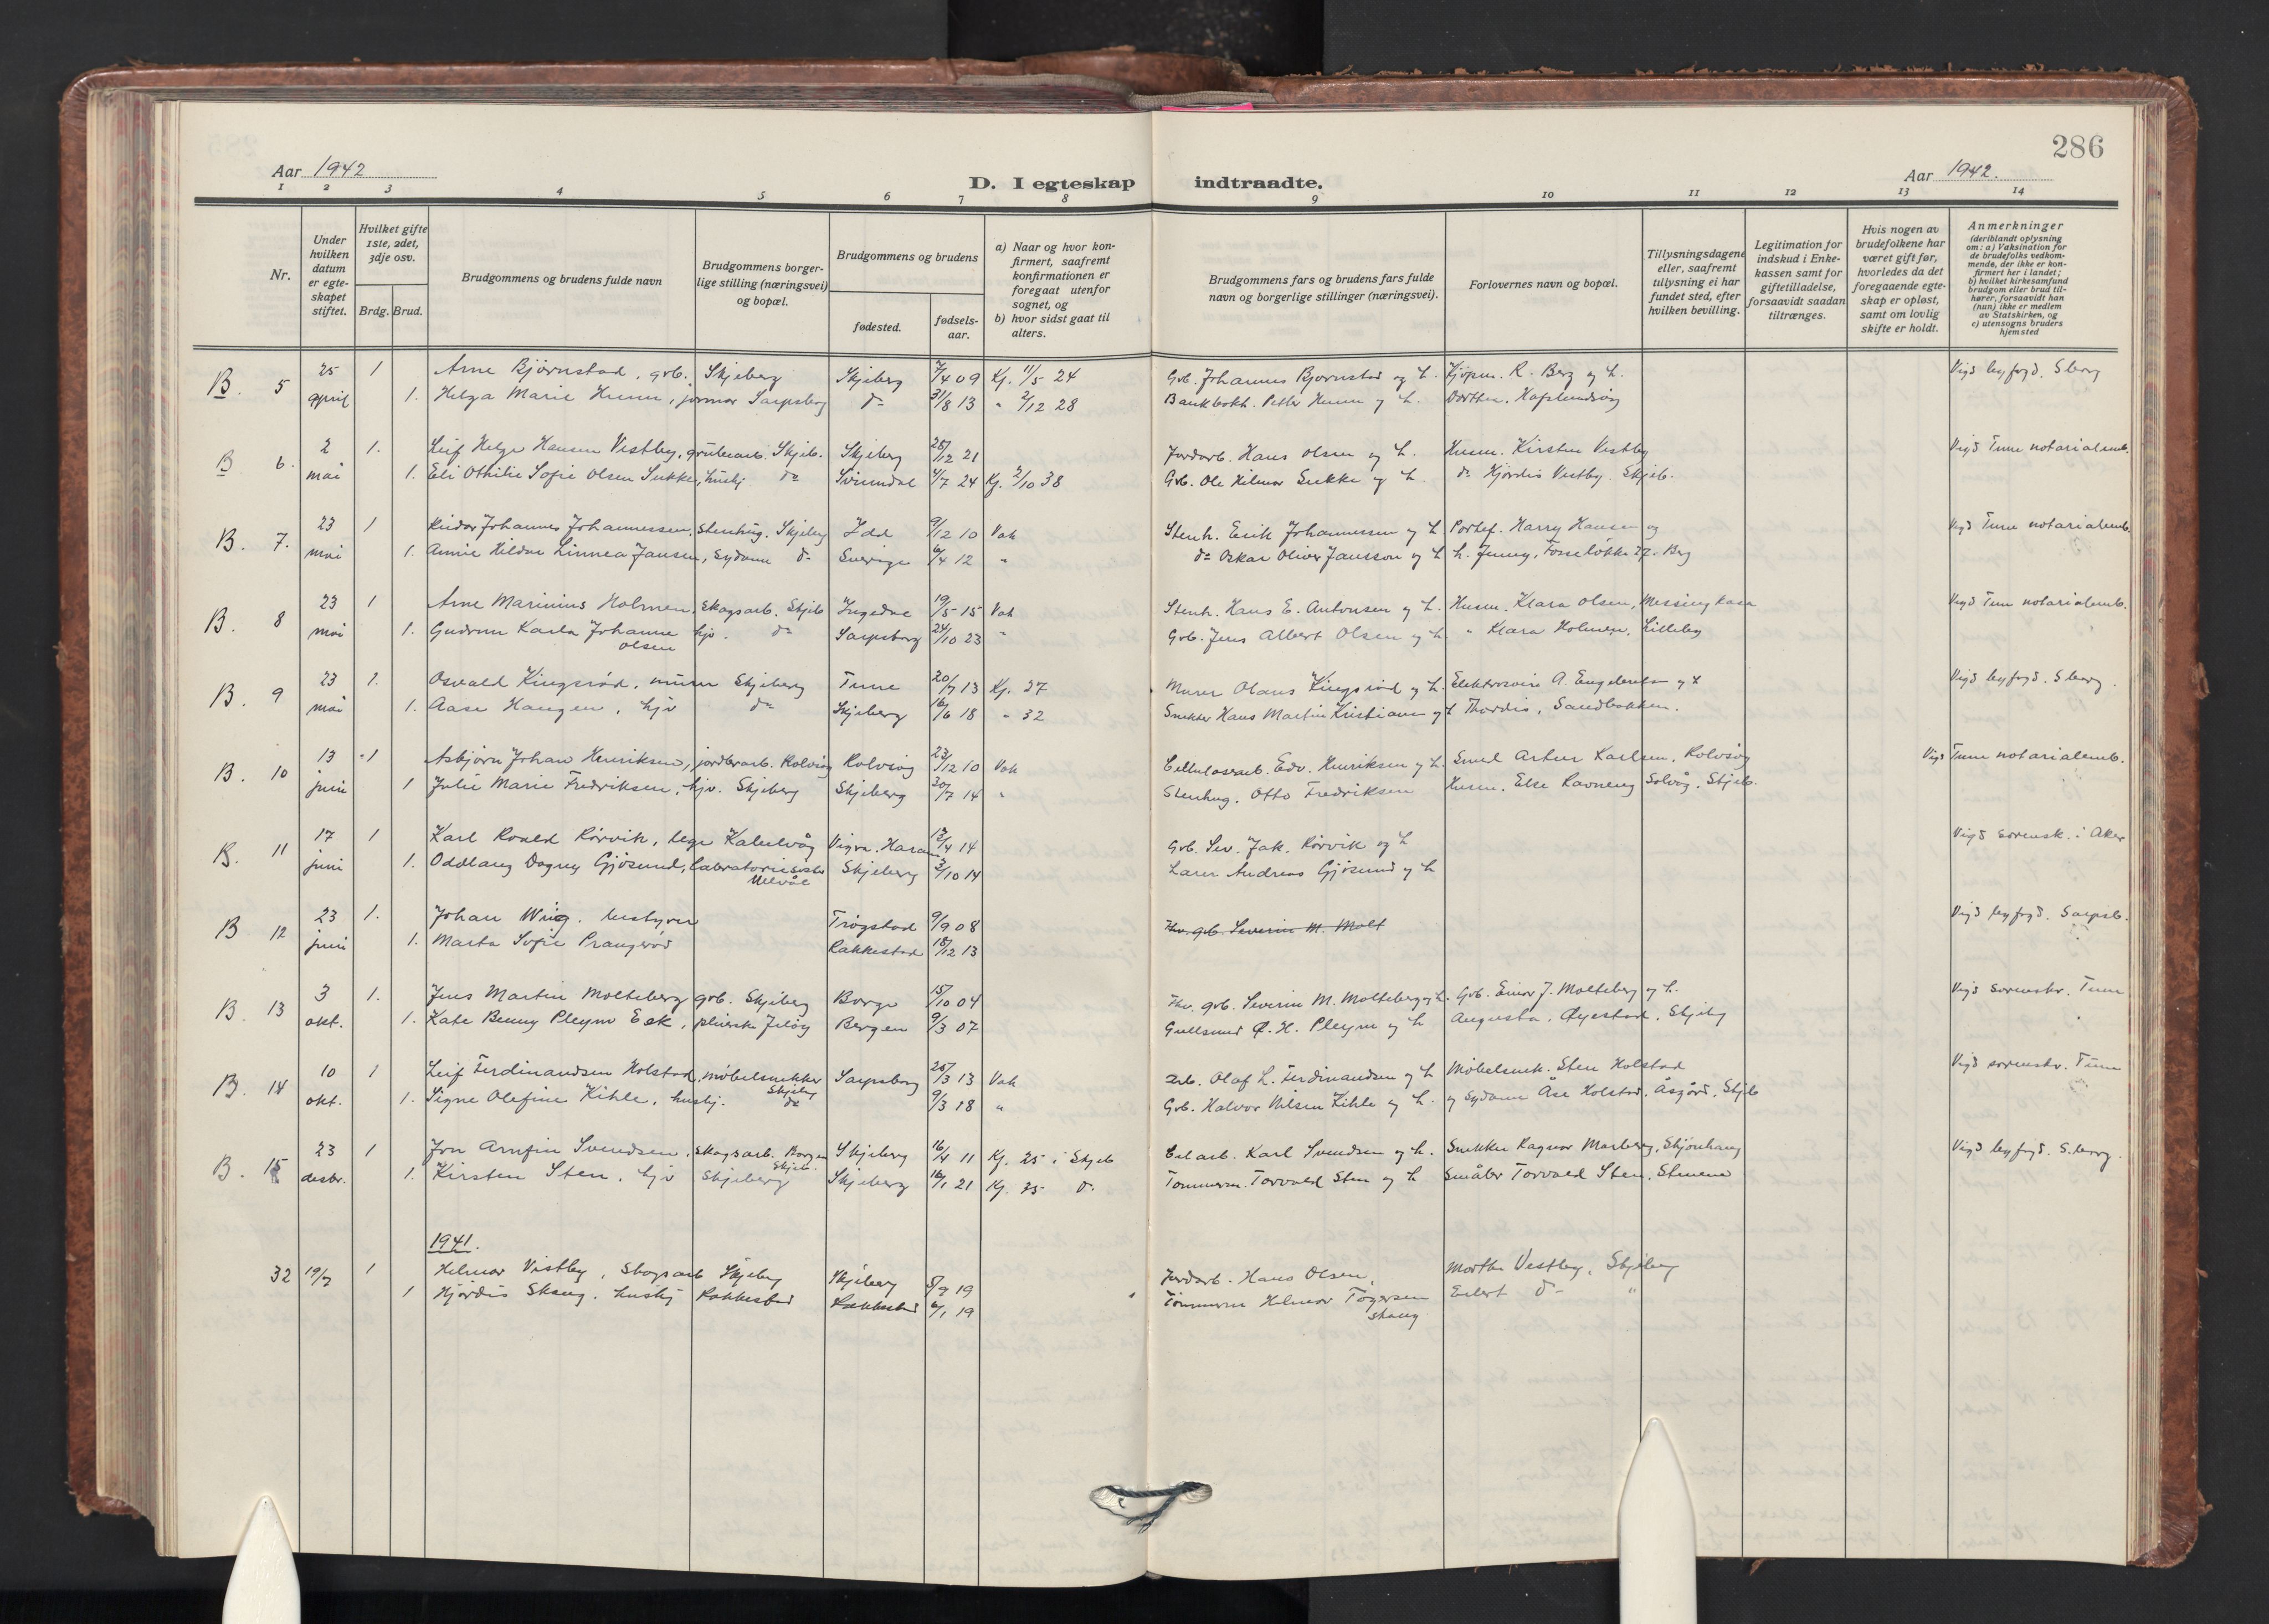 286
Aar 1942
D. I egteskap indtraadte.
Aar 1942.
1 2 3 4 5 6 7 8 9 10 11 12 13 14
Nr.
Under hvilken datum er egteskapet stiftet.
Hvilket gifte 1ste, 2det, 3dje osv.
Brdg. Brud.
Brudgommens og brudens fulde navn
Brudgommens borgerlige stilling (næringsvei) og bopæl.
Brudgommens og brudens
fødested.
fødselsaar.
a) Naar og hvor konfirmert, saafremt konfirmationen er foregaat utenfor sognet, og
b) hvor sidst gaat til alters.
Brudgommens fars og brudens fars fulde navn og borgerlige stillinger (næringsvei).
Forlovernes navn og bopæl.
Tillysningsdagene eller, saafremt tillysning ei har fundet sted, efter hvilken bevilling.
Legitimation for indskud i Enkekassen samt for giftetilladelse, forsaavidt saadan tiltrænges.
Hvis nogen av brudefolkene har været gift før, hvorledes da det foregaaende egteskap er opløst, samt om lovlig skifte er holdt.
Anmerkninger
(deriblandt oplysning om: a) Vaksination for de brudefolks vedkommende, der ikke er konfirmert her i landet; b) hvilket kirkesamfund brudgom eller brud tilhører, forsaavidt han (hun) ikke er medlem av Statskirken, og c) utensogns bruders hjemsted
B. 5 25 1 Arne Bjørnstad, grb. Skjeberg Skjeberg 7/4 09 Kf. 11/5 24 Grb. Johannes Bjørnstad og h. Kjøpm. R. Berg og h. Vigd byfogd. Sborg
april 1. Helga Marie Hunn, Sarpsborg do 31/8 13 " 2/12 28 Bankbokh. Petter Hunn og h. Dorthea, Hafslundsøy
B 6. 2 1. Leif Helge Hansen Vestby, grubearb. Skjeb. Skjeberg 28/12 21 Jordarb. Hans Olsen og h. Husm. Kirsten Vestby Vigd Tune notarialemb.
mai 1. Eli Othilie Sofie Olsen Sukke, hushj do Svinndal 4/7 24 Kf. 2/10 38 Grb. Ole Hilmar Sukke og h. do Hjørdis Vestby. Skjeb.
B. 7. 23 1 Reidar Johannes Johannessen, stenhug. Skjeberg Idd 9/12 10 Vak Stenh. Erik Johannessen og h Portef. Harry Hansen og Vigd Tune notarialemb.
mai 1. Annie Hildur Linnea Jansen, sydame do Sverige 6/4 12 " do Oskar Oliver Jansson og h h. Jenny, Fosseløkka 27. Berg
B. 8 23 1 Arne Marinius Holmen, Skogsarb. Skjeb Ingedal 19/5 15 Vak Stenh. Hans E. Antonsen og h. Husm. Klara Olsen, Vigd Tune notarialemb.
mai 1. Gudrun Karla Johanne hjv. do Sarpsborg 24/10 23 " Grb. Jens Albert Olsen og h " Klara Holmen, Lilleby
Olsen
B. 9 23 1. Osvald Kingsrød, murer Skjeberg Tune 20/7 13 Kf. 27 Murer Olaus Kingsrød og h. A. Engebretsen og h Vigd byfogd. Sborg.
mai 1. Aase Haugen, hjv do Skjeberg 16/6 18 " 32 Snekker Hans Martin Kristiansen og h Thordis, Sandbakken.
B. 10 13 1 Asbjørn Johan Henriksen, jordbrarb. Rolvsøy Rolvsøy 23/12 10 Vak Cellulosearb. Edv. Henriksen og h. Emil Artur Karlsen, Rolvsøy Vigd Tune notarialemb.
juni 1 Julie Marie Fredriksen, hjv. Skjeberg Skjeberg 30/7 14 " Stenhug. Otto Fredriksen Husm. Else Ravneng Solvåg, Skjeb.
B. 11 17 1 Karl Roald Rørvik, lege Kabelvåg Vigra. Haram 12/4 14 Grb. Sev. Jak. Rørvik og h Vigd sorensk. i Aker
juni 1. Oddlaug Dagny Gjøsund, Skjeberg 3/10 14 Lærer Andreas Gjøsund og h
Ullevål
B 12 23 1. Johan Wiig. Trøgstad 9/9 08 Fhv. grb. Severin M. Molt Vigd byfogd. Sarpsb.
juni 1. Marta Sofie Prangerød Rakkestad 18/12 13
B. 13 3 1. Jens Martin Molteberg grb. Skjeberg Borge 15/10 04 Fhv. grb. Severin M. Molteberg og h. Grb. Einar J. Molteberg og h. Vigd sorenskr. Tune
okt. 1. Kate Benny Pleym Eek, Jeløy Bergen 9/3 07 Gullsmed H. Pleym og h Augusta, Øyestad, Skjebg
B. 14 10 1 Leif Ferdinandsen Holstad, møbelsnekker Sarpsborg 25/3 13 Vak Arb. Olaf L. Ferdinandsen og h Møbelsnek. Sten Holstad Vigd sorenskr. Tune
okt. 1. Signe Olefine Kihle, hushj. Skjeberg do 9/3 18 " Grb. Halvor Nilsen Kihle og h. og sydame Åse Holstad, Åsgård, Skjb
B. 15 23 1 Jon Arnfin Svendsen, Skogsarb. Borgen Skjeb. Skjeberg 16/4 11 Kf. 25 i Skjeb Cel arb. Karl Svendsen og h. Snekker Ragnar Moberg, Skjønhaug Vigd byfogd. S.borg.
desbr. 1. Kirsten Sten, hjv Skjeberg Skjeberg 16/1 21 Kf. 35 do Tømmerm. Torvald Sten og h Småbr Torvald Sten, Stenene
1941.
32 19/7 1 Helmar Vestby, Skogsarb Skjeberg Skjeberg 8/9 19 Jordarb. Hans Olsen, Marthe Vestby, Skjeberg
1 Hjørdis Skaug, hushj Rakkestad Rakkestad 6/1 19 Tømmerm Helmar Togersen Eilert do "
Skaug